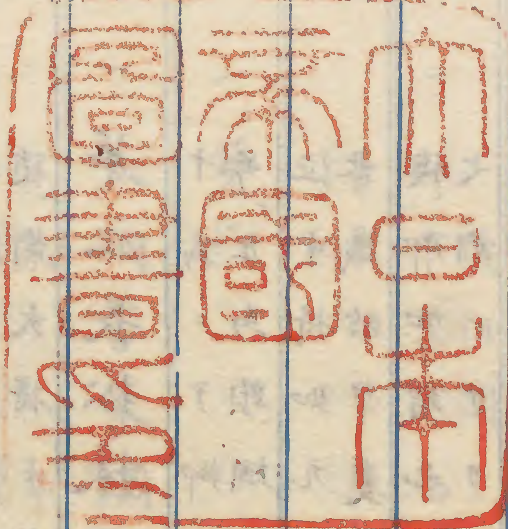 大日本
帝國
圖書印